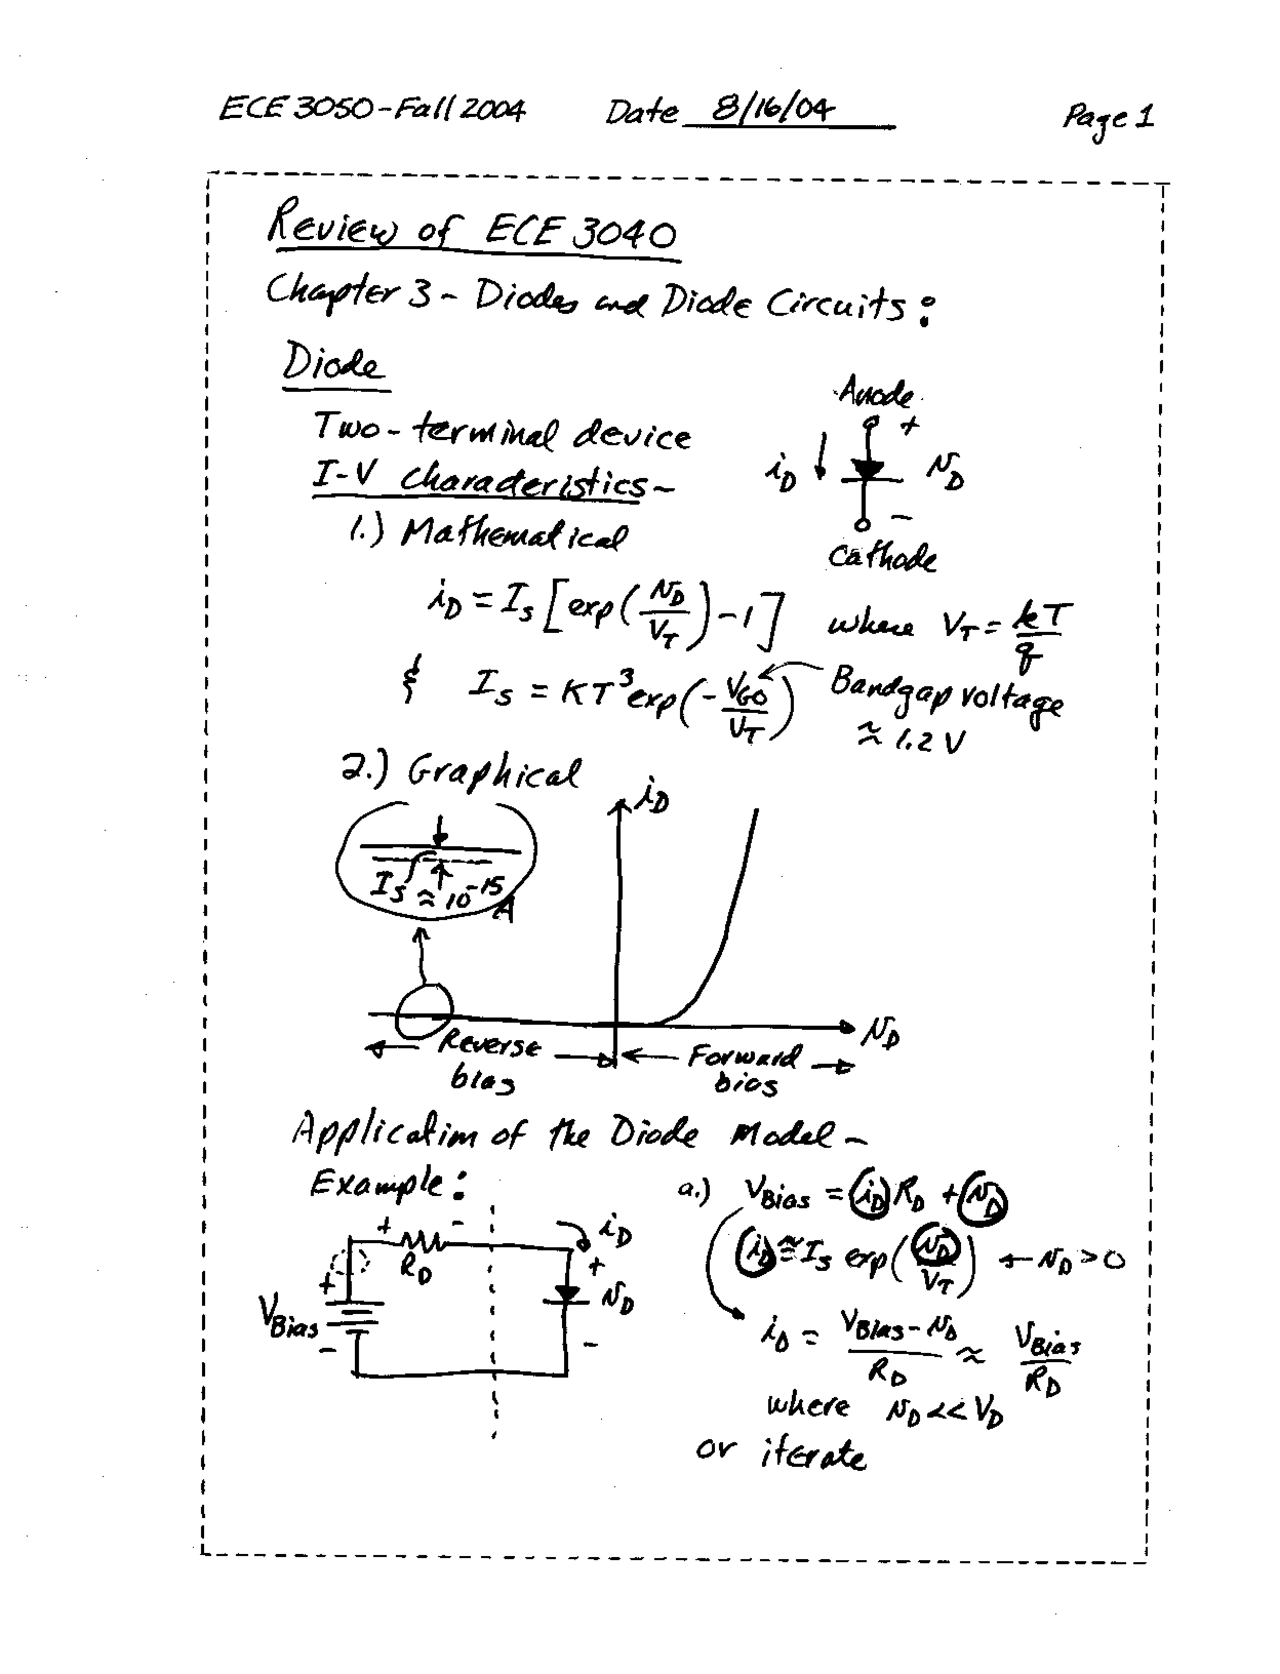 ECE 3050-Fall 2004 Date 8/16/04 Page 1
Review of ECE 3040
Chapter 3 - Diodes and Diode Circuits:
Diode
Two-terminal device
I-V characteristics~
1.) Mathematical
Anode
+
i_D ↓ v_D
-
Cathode
i_D = I_s [exp(v_D/V_T) - 1] where V_T = kT/q
& I_s = KT³exp(-V_GO/V_T) ← Bandgap voltage
≈ 1.2 V
2.) Graphical
i_D
I_s ≈ 10^-15 A
v_D
← Reverse bias → ← Forward bias →
Application of the Diode Model ~
Example:
+ R_D -
i_D
+ v_D -
+ V_Bias -
a.) V_Bias = i_D R_D + v_D
i_D ≅ I_s exp(v_D/V_T) ← v_D > 0
i_D = (V_Bias - v_D)/R_D ≈ V_Bias/R_D
where v_D << V_D
or iterate